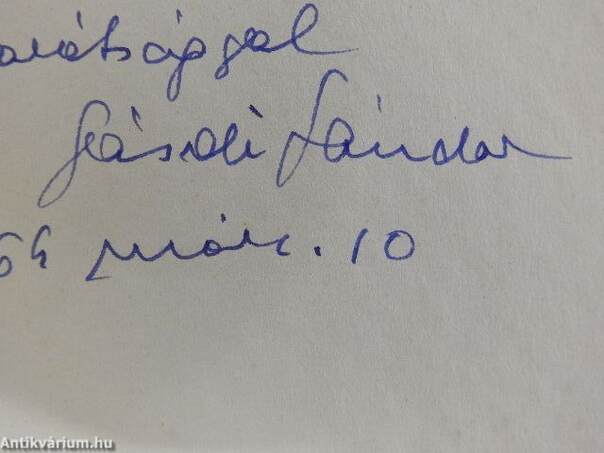 arátsággal
Sásdi Sándor
64 márc. 10
Antikvárium.hu